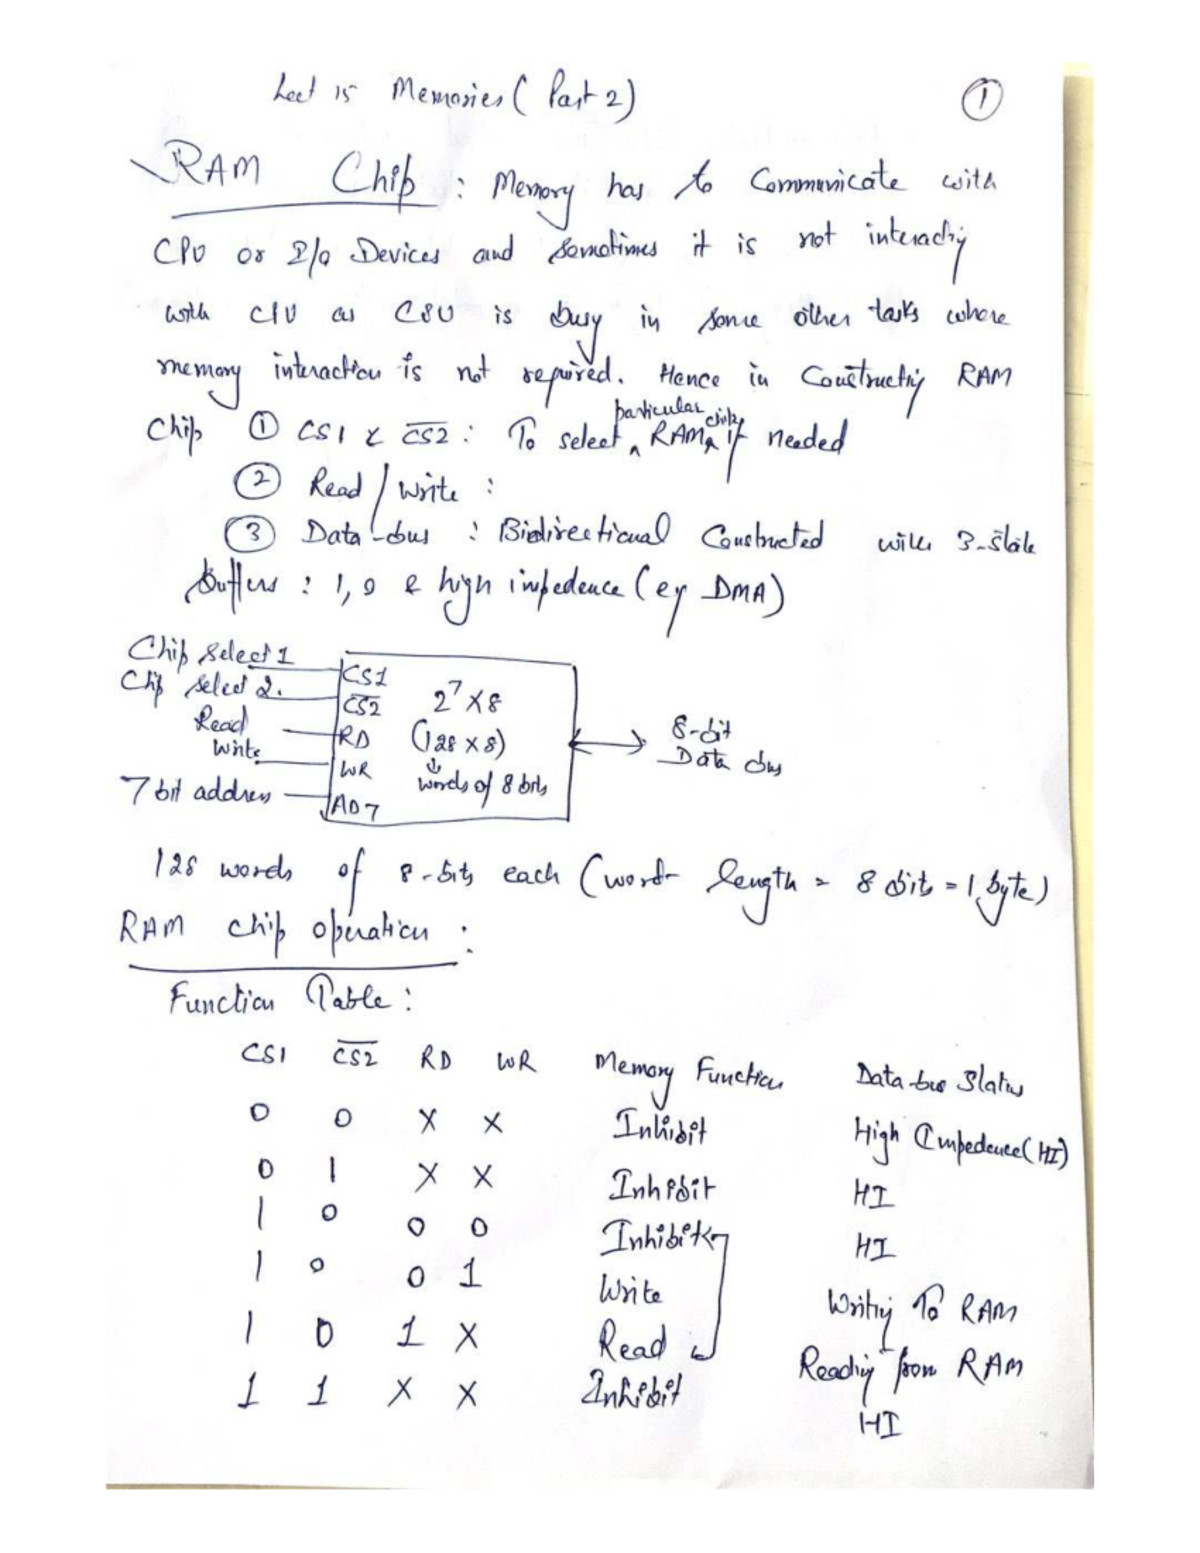 Lect 15 Memories (Part 2)
1
RAM Chip : Memory has to Communicate with
CPU or I/O Devices and sometimes it is not interacting
with CPU as CPU is busy in some other tasks where
memory interaction is not required. Hence in Constructing RAM
Chip ① CS1 & C̅S̅2̅ : To select particular RAM chip if needed
② Read / Write :
③ Data-bus : Bidirectional Constructed with 3-state
Buffers : 1, 0 & high impedence (eg DMA)
Chip Select 1
Chip Select 2.
Read
Write
7 bit address
CS1
C̅S̅2̅
RD
WR
AD7
2⁷ X 8
(128 x 8)
↓
words of 8 bits
8-bit
Data bus
128 words of 8-bits each (word length = 8 bits = 1 byte)
RAM chip operation :
Function Table :
CS1 C̅S̅2̅ RD WR Memory Function Data bus Status
0 0 X X Inhibit High Impedence (HI)
0 1 X X Inhibit HI
1 0 0 0 Inhibit HI
1 0 0 1 Write Writing To RAM
1 0 1 X Read Reading from RAM
1 1 X X Inhibit HI